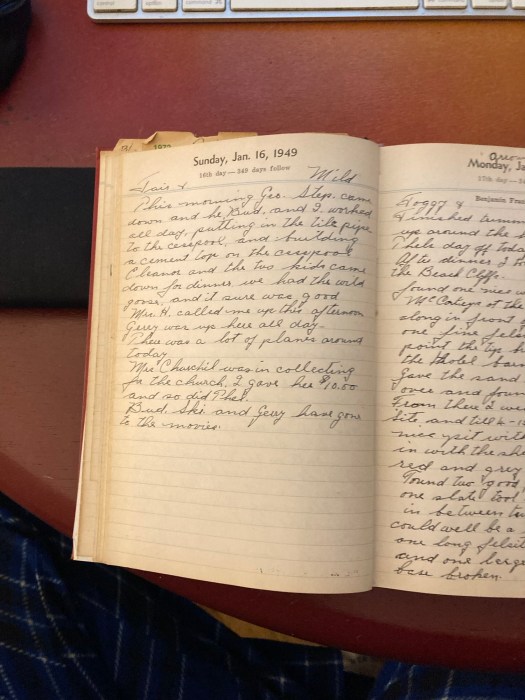 Sunday, Jan. 16, 1949
16th day — 349 days follow
Fair & Mild
This morning Geo. Steps. came
down and he, Bud, and I worked
all day, putting in the tile pipe
to the cesspool, and building
a cement top on the cesspool.
Eleanor and the two kids came
down for dinner, we had the wild
goose, and it sure was good
Mrs. H. called me up this afternoon
Gerry was up here all day.
There was a lot of planes around
today.
Mrs Churchil was in collecting
for the church, I gave her $10.00
and so did Phel.
Bud, Ski and Gerry have gone
to the movies.
Monday, Ja
17th day — 34
Benjamin Fran
Foggy &
Finished
up around the
Phels day off toda
After dinner I
the Beach Cliffs.
found one nice
McCakeys at the
along in front
one fine
point the tip
the Hotel
Gave the sand
over and foun
From there I we
site, and till 4-
nice visit with
in with the
red and grey
Found two good
one slate tool
in between
could well be a
one long felsit
and one large
base broken.